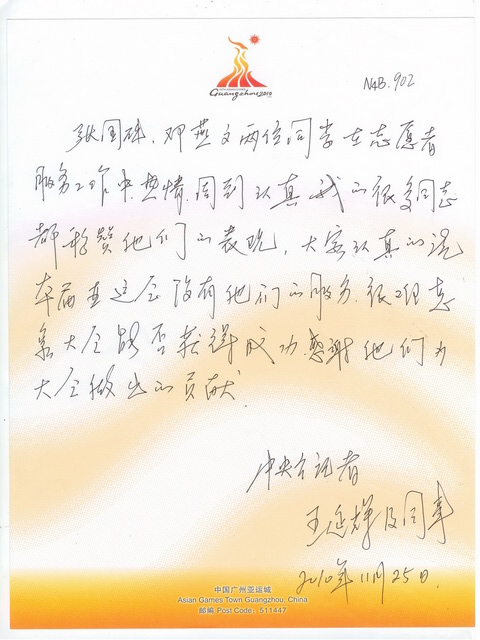 Guangzhou 2010
N4B.902
张国珠、邓燕文两位同学在志愿者
服务工作中热情周到认真，我的很多同志
都称赞他们的表现，大家认真的说
本届亚运会没有他们的服务，很难想
象大会能否获得成功，感谢他们为
大会做出的贡献
中央台记者
王延辉及同事
2010年11月25日
中国广州亚运城
Asian Games Town Guangzhou, China
邮编 Post Code：511447